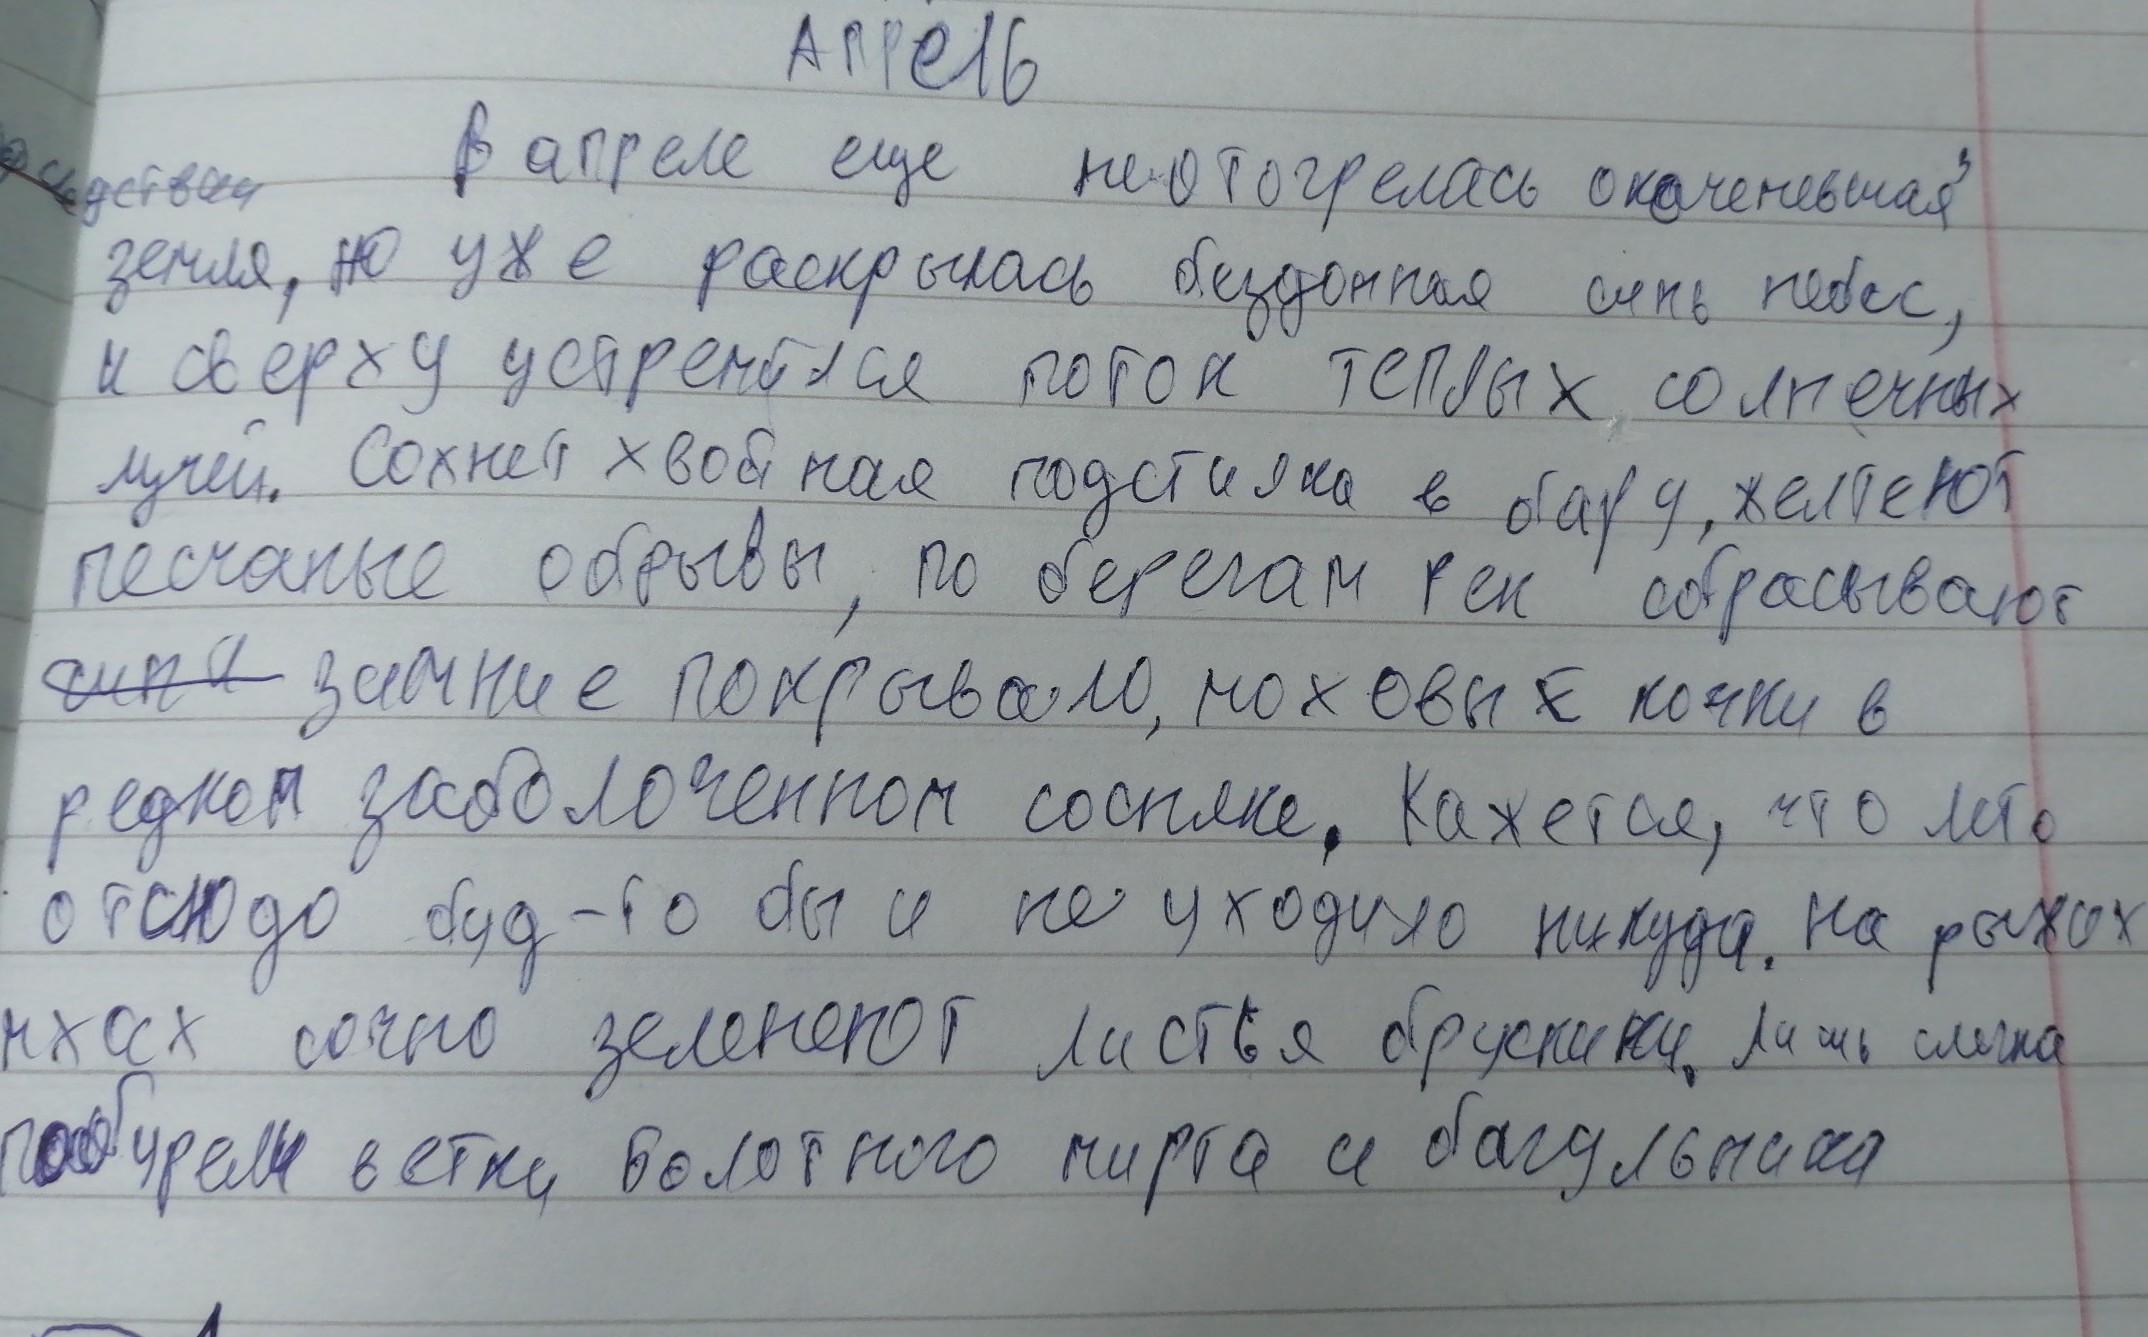 Апрель
В апреле еще не отогрелась окоченевшая
земля, но уже раскрылась бездонная синь небес,
и сверху устремился поток теплых солнечных
лучей. Сохнет хвойная подстилка в бару, желтеют
песчаные обрывы, по берегам рек сбрасывают
зимние покрывало, моховые кочки в
редком заболоченном сосняке. Кажется, что лето
отсюдо буд-то бы и не уходило никуда. На рыжах
мхах сочно зеленеют листья брусники. Лишь слегка
побурели ветки болотного мирта и багульника